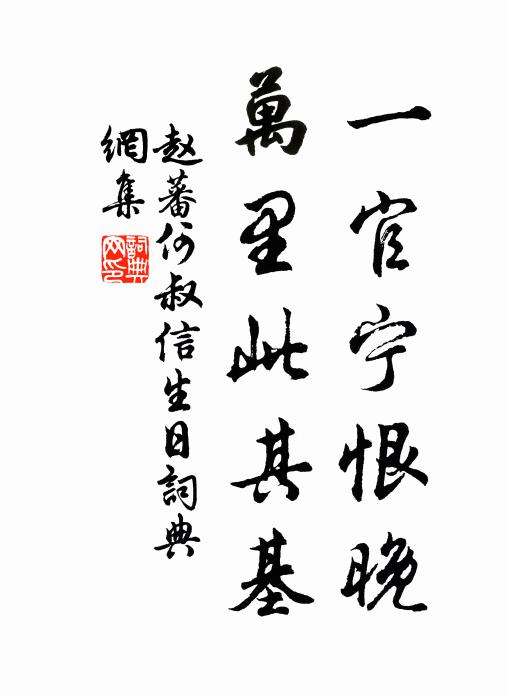 一官宁恨晚
萬里此其基
赵蕃何叔信生日詞典
網集
詞典
网印